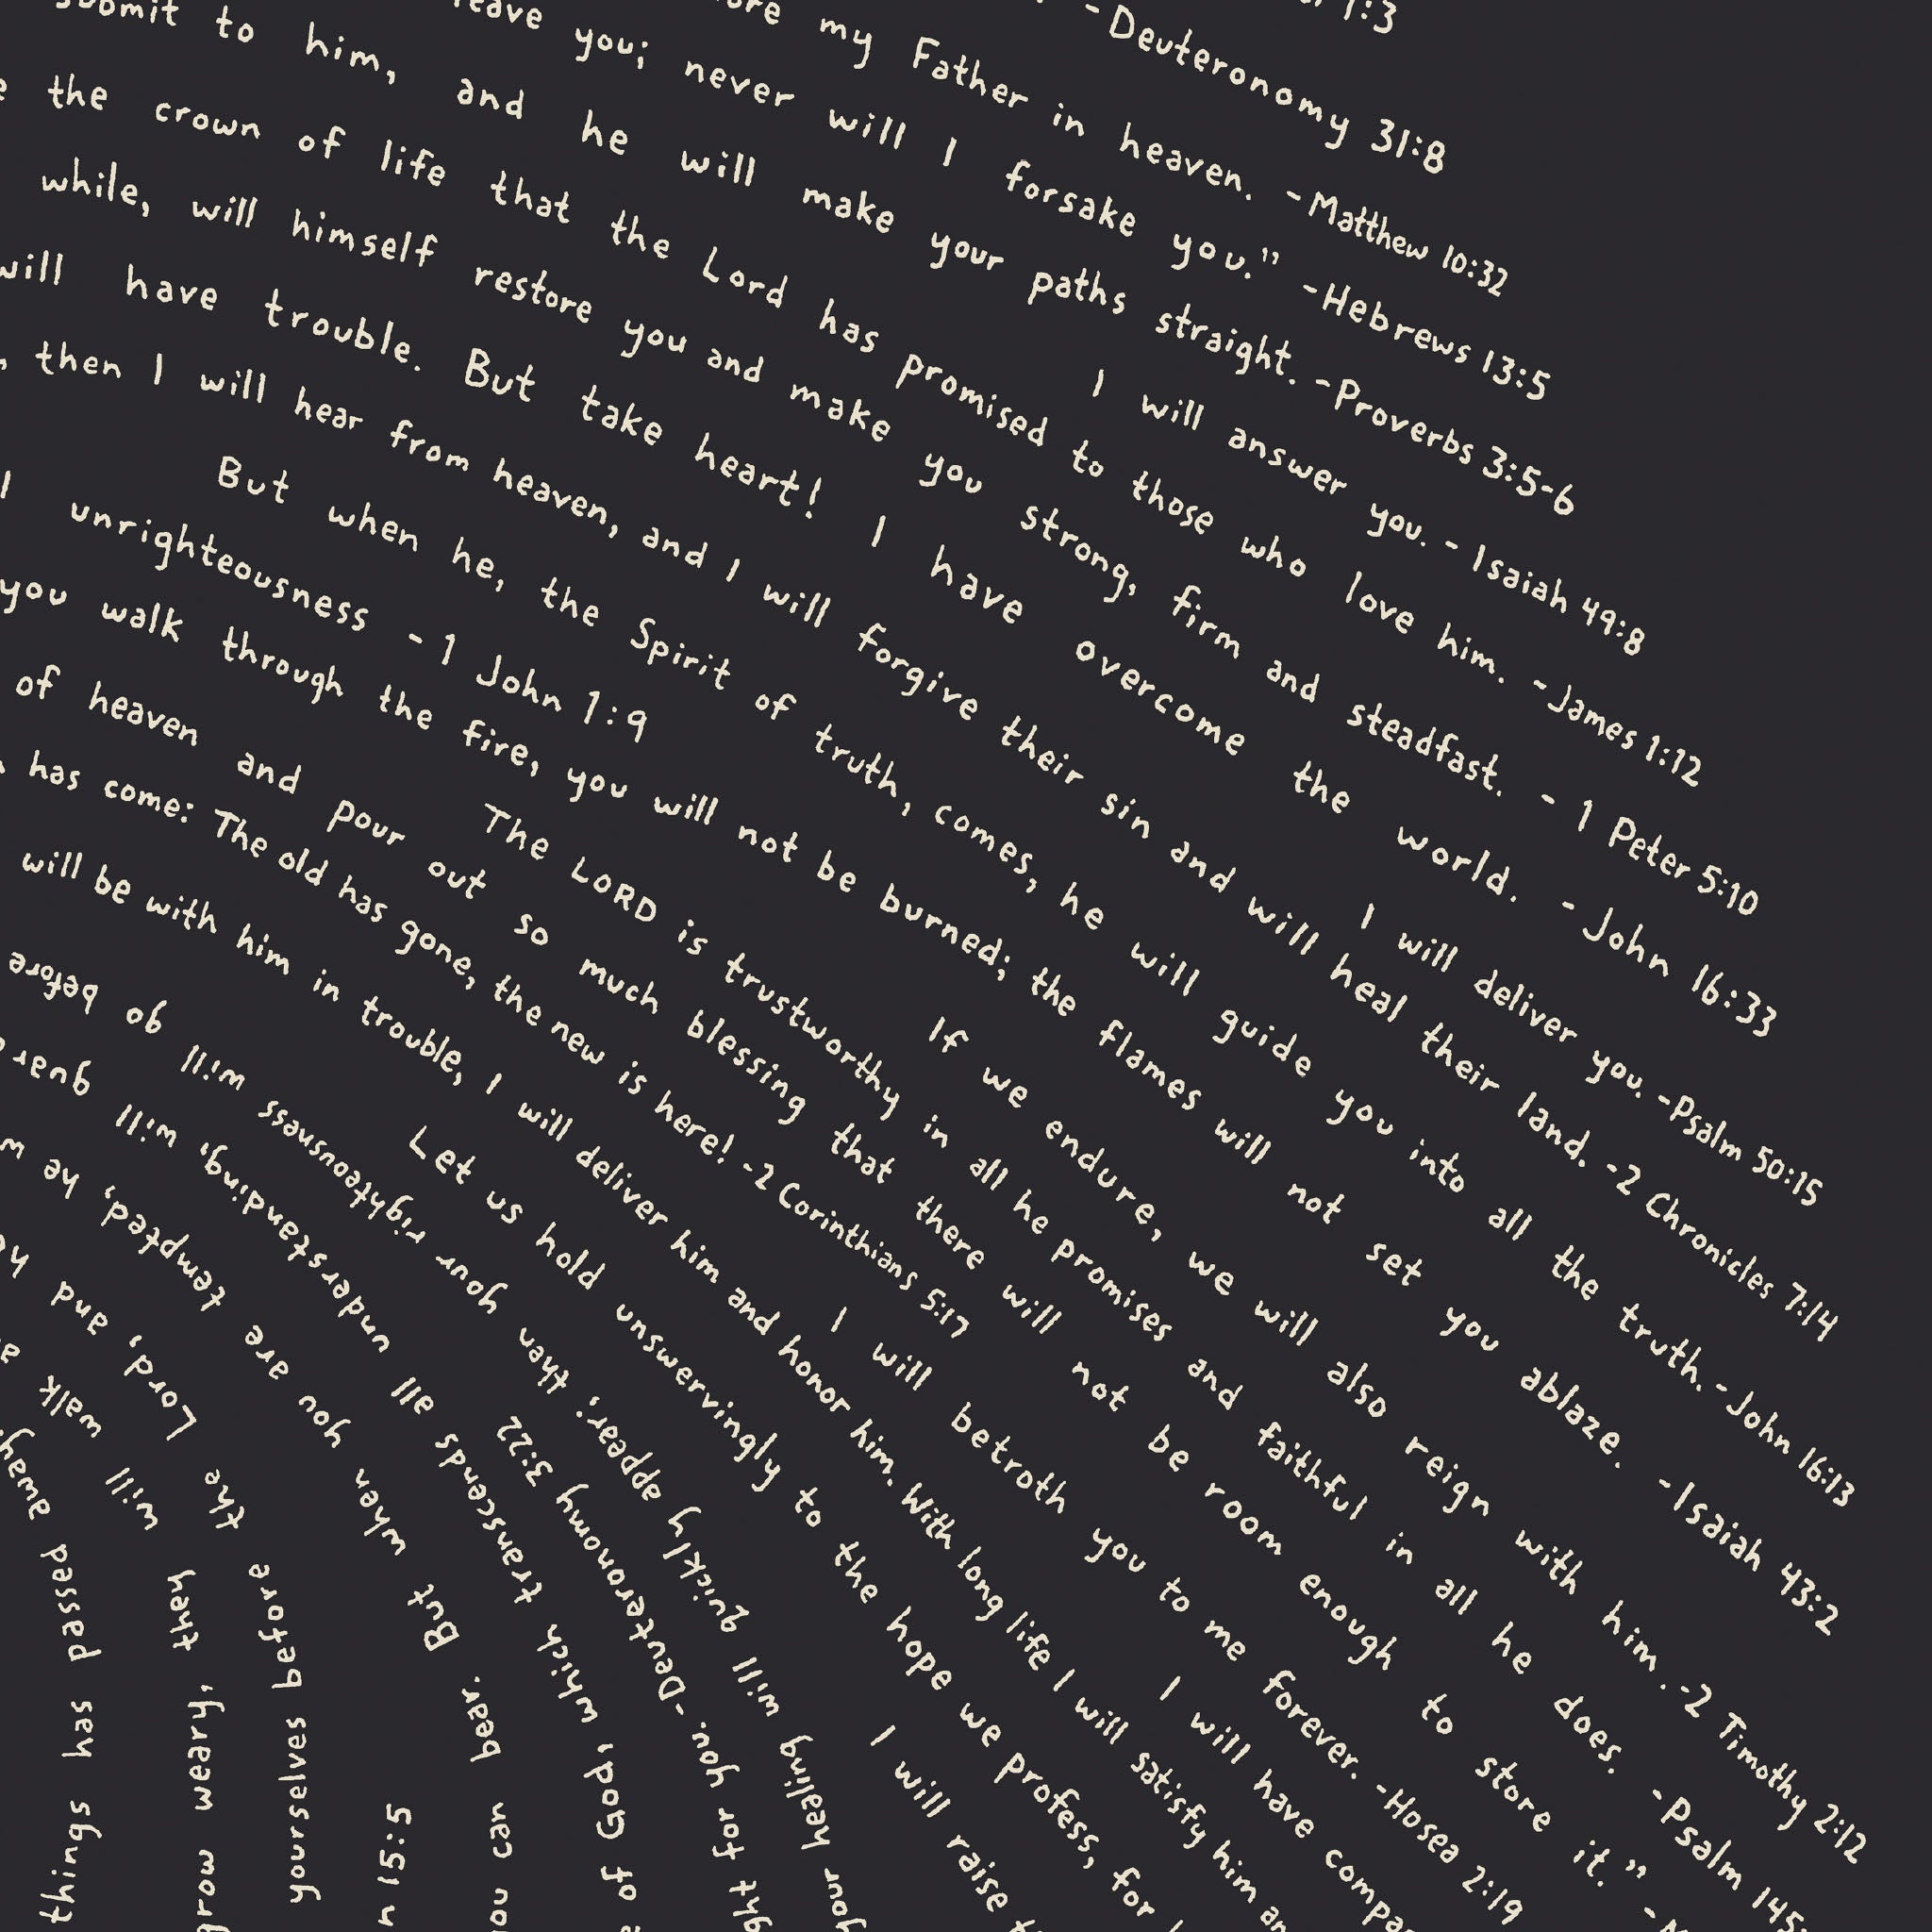 1:3
- Deuteronomy 31:8
my Father in heaven. - Matthew 10:32
you; never will I forsake you." - Hebrews 13:5
to him, and he will make your paths straight. - Proverbs 3:5-6
I will answer you. - Isaiah 49:8
the crown of life that the Lord has promised to those who love him. - James 1:12
while, will himself restore you and make you strong, firm and steadfast. - 1 Peter 5:10
will have trouble. But take heart! I have overcome the world. - John 16:33
I will deliver you. - Psalm 50:15
then I will hear from heaven, and I will forgive their sin and will heal their land. - 2 Chronicles 7:14
But when he, the Spirit of truth, comes, he will guide you into all the truth. - John 16:13
unrighteousness - 1 John 1:9
you walk through the fire, you will not be burned; the flames will not set you ablaze. - Isaiah 43:2
If we endure, we will also reign with him. - 2 Timothy 2:12
The LORD is trustworthy in all he promises and faithful in all he does. - Psalm 145:
of heaven and pour out so much blessing that there will not be room enough to store it." -
has come: The old has gone, the new is here! - 2 Corinthians 5:17
I will betroth you to me forever. - Hosea 2:19
I will have
will be with him in trouble, I will deliver him and honor him. With long life I will satisfy him
Let us hold unswervingly to the hope we profess, for
I will raise
your healing will quickly appear; then your righteousness will go before
for you. - Deuteronomy 3:22
of God, which transcends all understanding, will
can bear. But when you are tempted, he
15:5
yourselves before the Lord, and
grow weary, they will walk
things has passed away